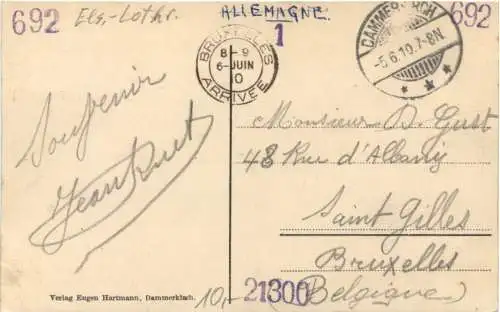 692
Els.-Lothr.
ALLEMAGNE.
692
1
BRUXELLES
8-9
6-JUIN
0
ARRIVÉE
DAMMERKIRCH
-5.6.10.7-8N.
* * *
Souvenir
Jean
Monsieur D. Gust
48 Rue d'Albany
Saint Gilles
Bruxelles
(Belgique)
Verlag Eugen Hartmann, Dammerkirch.
10,-
21300